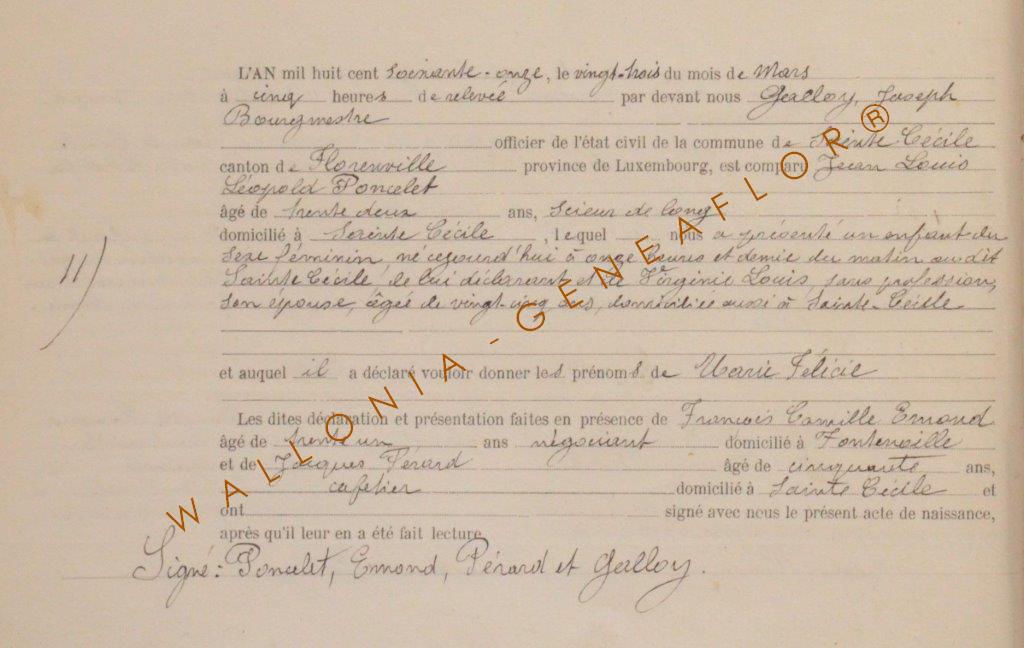 L'AN mil huit cent soixante-onze, le vingt-trois du mois de Mars
à cinq heures de relevée par devant nous Galloy, Joseph
Bourgmestre
officier de l'état civil de la commune de Sainte Cécile
canton de Florenville province de Luxembourg, est comparu Jean Louis
Léopold Poncelet
âgé de trente deux ans, scieur de long
domicilié à Sainte Cécile, lequel nous a présenté un enfant du
sexe féminin, né cejourd'hui à onze heures et demie du matin au dit
11) Sainte Cécile, de lui déclarant et de Virginie Louis, sans profession,
son épouse, âgée de vingt-cinq ans, domiciliée aussi à Sainte-Cécile
et auquel il a déclaré vouloir donner les prénoms de Marie Félicie
Les dites déclaration et présentation faites en présence de François Camille Emond
âgé de trente un ans négociant domicilié à Fontenoille
et de Jacques Pérard âgé de cinquante ans,
cafetier domicilié à Sainte Cécile et
ont signé avec nous le présent acte de naissance,
après qu'il leur en a été fait lecture.
Signé: Poncelet, Emond, Pérard et Galloy.
WALLONIA-GENEAFLOR®